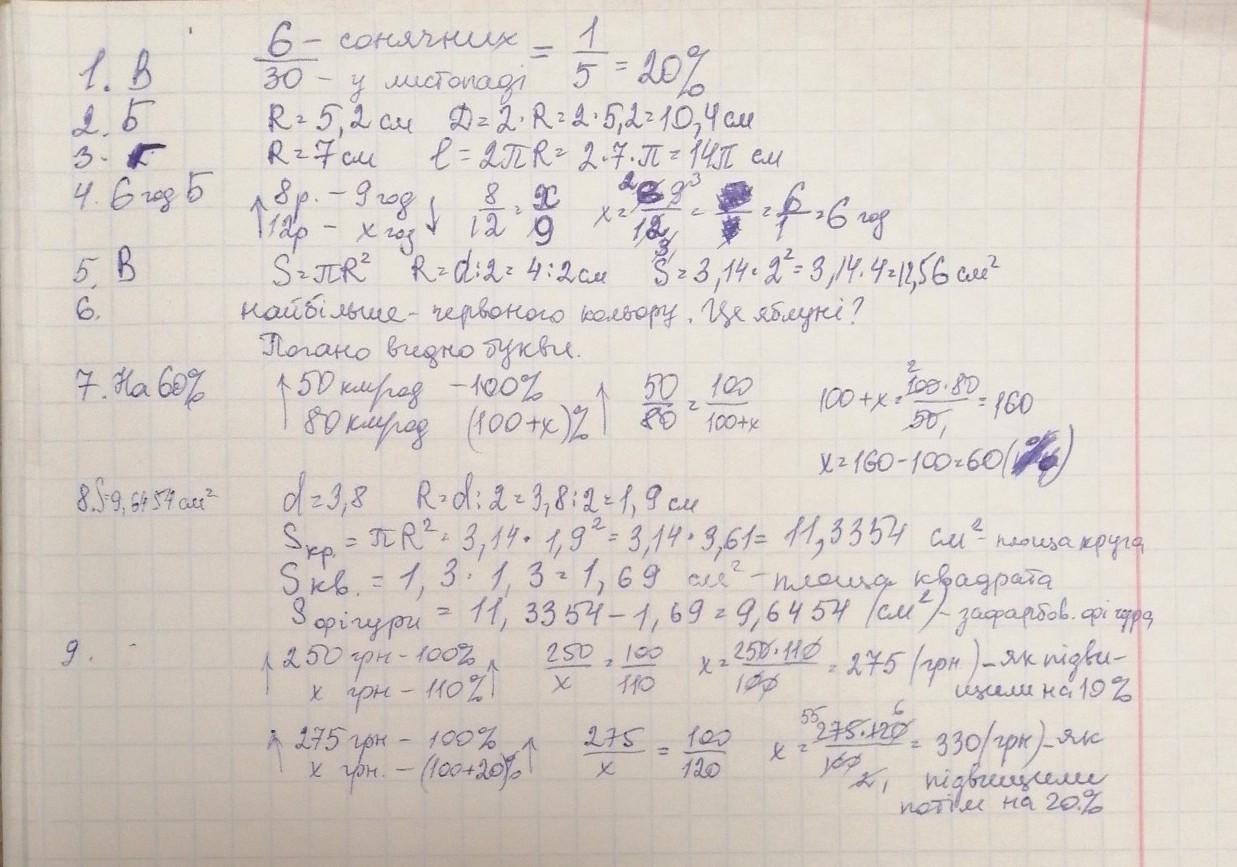 1. В 6 – сонячних / 30 – у листопаді = 1/5 = 20%
2. Б R = 5,2 см D = 2·R = 2·5,2 = 10,4 см
3. R = 7 см l = 2πR = 2·7·π = 14π см
4. 6 год Б ↑ 8р. – 9 год ↓ 8/12 = x/9 x = 9/12 = = 6/1 = 6 год
12р – x год
5. В S = πR² R = d:2 = 4:2 см S = 3,14·2² = 3,14·4 = 12,56 см²
6. найбільше – червоного кольору. Це яблуні?
Погано видно букви.
7. На 60% ↑ 50 км/год – 100% ↑ 50/80 = 100/(100+x) 100+x = 100·80/50 = 160
80 км/год (100+x)%
x = 160 – 100 = 60 (%)
8. S=9,6454 см² d = 3,8 R = d:2 = 3,8:2 = 1,9 см
Sкр. = πR² = 3,14·1,9² = 3,14·3,61 = 11,3354 см² – площа круга
Sкв. = 1,3·1,3 = 1,69 см² – площа квадрата
Sфігури = 11,3354 – 1,69 = 9,6454 (см²) – зафарбов. фігура
9. ↑ 250 грн – 100% ↑ 250/x = 100/110 x = 250·110/100 = 275 (грн) – як підви-
x грн – 110% щили на 10%
↑ 275 грн – 100% ↑ 275/x = 100/120 x = 275·120/100 = 330 (грн) – як
x грн. – (100+20)% підвищили
потім на 20%